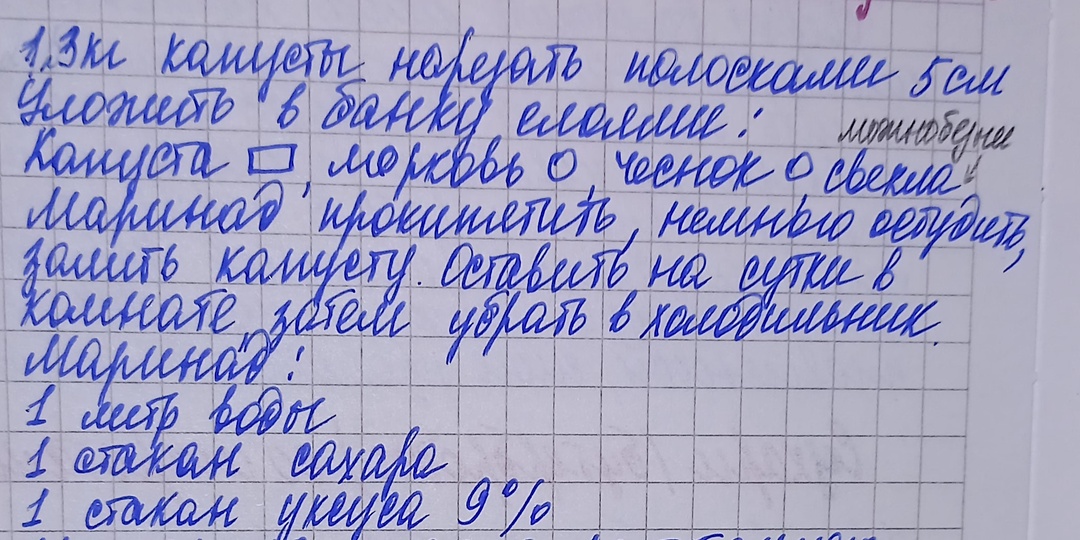 1,3кг капусты нарезать полосками 5см
Уложить в банку слоями:
можно без нее
Капуста □, морковь О, чеснок О свекла
Маринад прокипятить, немного остудить,
залить капусту. Оставить на сутки в
комнате, затем убрать в холодильник.
Маринад:
1 литр воды
1 стакан сахара
1 стакан уксуса 9%